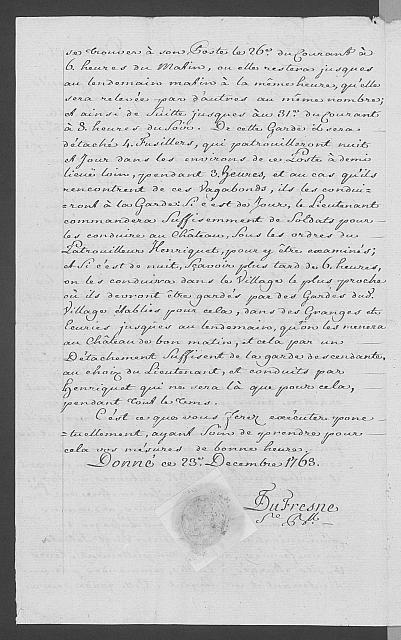 se trouver à son Poste le 26e. du Courant à
6. heures du Matin, ou elle restera jusques
au lendemain matin à la même heure, qu'elle
sera relevée par d'autres au même nombre;
& ainsi de Suitte jusques au 31e. du Courant
à 8. heures du Soir. De cette Garde il sera
détaché 4. Fusillers, qui patrouilleront nuit
& Jour dans les environs de ce Poste à demi
lieüe loin, pendant 3. heures, et au cas qu'ils
rencontrent de ces Vagabonds, ils les condui=
=ront à la Garde: Si c'est de Jour, le Lieutenant
commandera Suffisemment de Soldats pour
les conduire au Château, Sous les ordres du
Patrouilleur Henriquet, pour y être examinés;
& Si c'est de nuit, Sçavoir plus tard de 6. heures,
on les conduira dans le Village le plus proche
où ils devront être gardés par des Gardes dud.
Village établies pour cela, dans des Granges et
Ecuries jusques au lendemain, qu'on les menera
au Château de bon matin, et cela par un
Détachement Suffisent de la garde descendante,
au choix du Lieutenant, et conduits par
Henriquet qui ne sera là que pour cela,
pendant tout le tems.
C'est ce que vous ferez exécuter ponc=
=tuellement, ayant Soin de prendre pour
cela vos mesures de bonne heure.
Donné ce 23e. Decembre 1763.
DuFresne